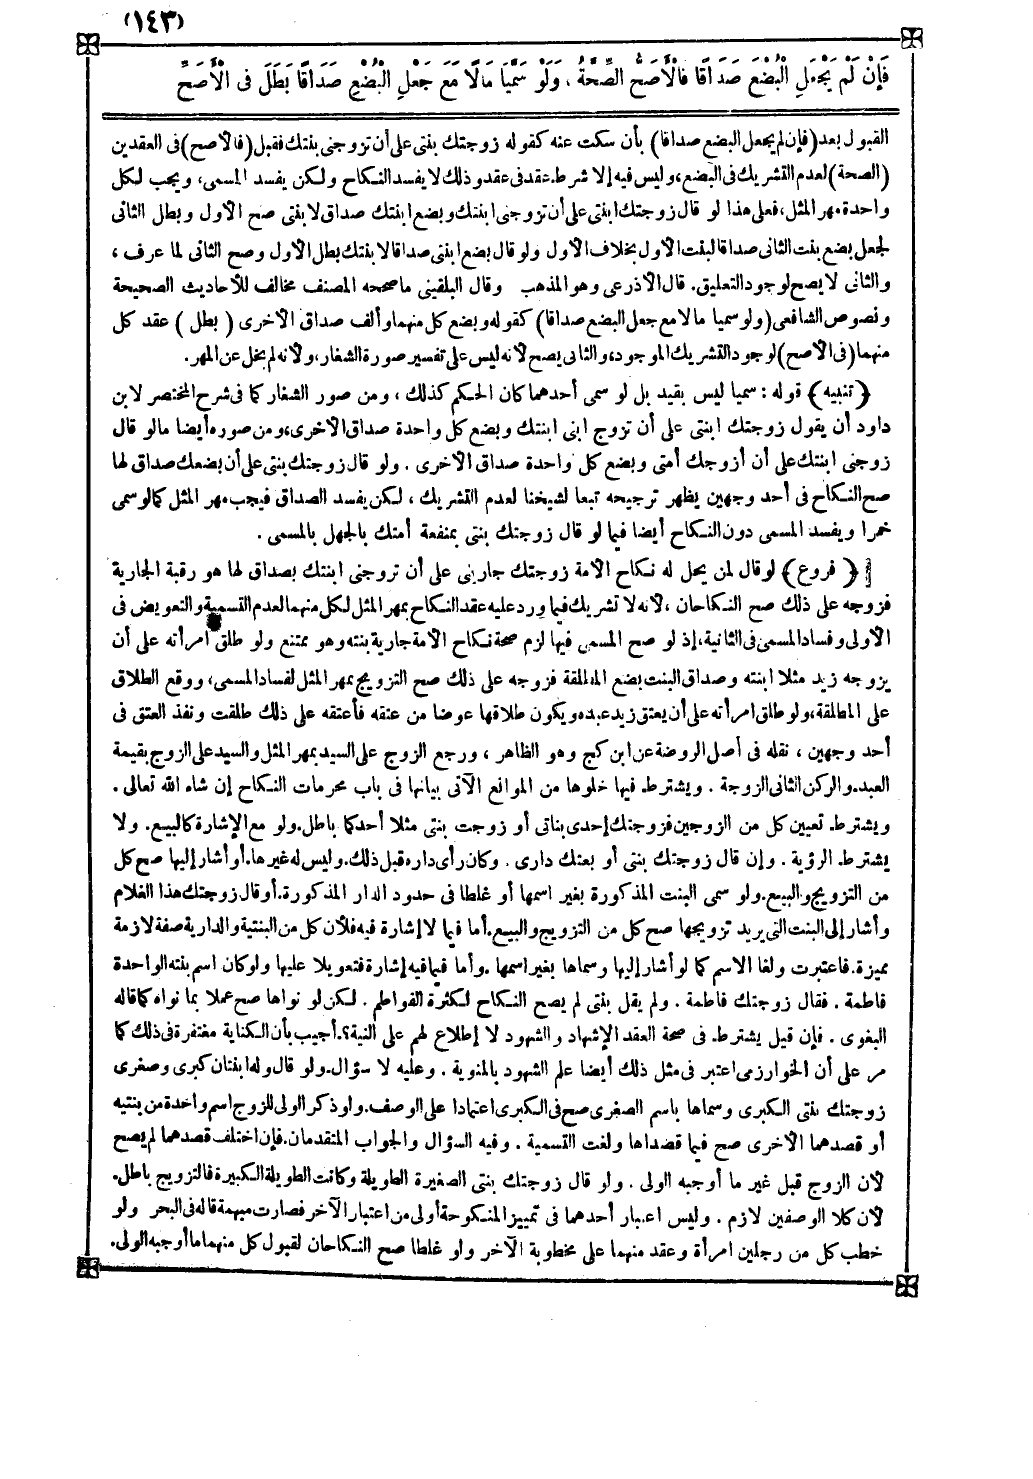 (١٤٣)
فَإِنْ لَمْ يَجْعَلِ الْبُضْعَ صَدَاقًا فَالْأَصَحُّ الصِّحَّةُ ، وَلَوْ سَمَّيَا مَالًا مَعَ جَعْلِ الْبُضْعِ صَدَاقًا بَطَلَ فِى الْأَصَحِّ
القبول بعد (فإن لم يجعل البضع صداقا) بأن سكت عنه كقوله زوجتك بنتى على أن تزوجنى بنتك فقبل (فالأصح) فى العقدين
(الصحة) لعدم التشريك فى البضع، وليس فيه إلا شرط عقد فى عقد وذلك لا يفسد النكاح ولكن يفسد المسمى، ويجب لكل
واحدة مهر المثل، فعلى هذا لو قال زوجتك ابنتى على أن تزوجنى ابنتك وبضع ابنتك صداق لابنتى صح الأول وبطل الثانى
لجعل بضع بنت الثانى صداقا لبنت الأول بخلاف الأول ولو قال بضع ابنتى صداقا لابنتك بطل الأول وصح الثانى لما عرف ،
والثانى لا يصح لوجود التعليق. قال الأذرعى وهو المذهب وقال البلقينى ما صححه المصنف مخالف للأحاديث الصحيحة
ونصوص الشافعى (ولو سميا مالا مع جعل البضع صداقا) كقوله وبضع كل منهما وألف صداق الأخرى (بطل) عقد كل
منهما (فى الأصح) لوجود التشريك الموجود، والثانى يصح لأنه ليس على تفسير صورة الشغار، ولأنه لم يخل عن المهر.
(تنبيه) قوله : سميا ليس بقيد بل لو سمى أحدهما كان الحكم كذلك ، ومن صور الشغار كما فى شرح المختصر لابن
داود أن يقول زوجتك ابنتى على أن تزوج ابنى ابنتك وبضع كل واحدة صداق الأخرى، ومن صوره أيضا ما لو قال
زوجنى ابنتك على أن أزوجك أمتى وبضع كل واحدة صداق الأخرى . ولو قال زوجتك بنتى على أن بضعك صداق لها
صح النكاح فى أحد وجهين يظهر ترجيحه تبعا لشيخنا لعدم التشريك ، لكن يفسد الصداق فيجب مهر المثل كما لو سمى
خمرا ويفسد المسمى دون النكاح أيضا فيما لو قال زوجتك بنتى بمنفعة أمتك بالجهل بالمسمى .
(فروع) لو قال لمن يحل له نكاح الأمة زوجتك جاريتى على أن تزوجنى ابنتك بصداق لها هو رقبة الجارية
فزوجه على ذلك صح النكاحان ، لأنه لا تشريك فيما ورد عليه عقد النكاح بمهر المثل لكل منهما لعدم التسمية والتعويض فى
الأولى وفساد المسمى فى الثانية، إذ لو صح المسمى فيها لزم صحة نكاح الأمة جارية بنته وهو ممتنع ولو طلق امرأته على أن
يزوجه زيد مثلا ابنته وصداق البنت بضع المطلقة فزوجه على ذلك صح التزويج بمهر المثل لفساد المسمى، ووقع الطلاق
على المطلقة، ولو طلق امرأته على أن يعتق زيد عبده ويكون طلاقها عوضا من عتقه فأعتقه على ذلك طلقت ونفذ العتق فى
أحد وجهين ، نقله فى أصل الروضة عن ابن كج وهو الظاهر ، ورجع الزوج على السيد بمهر المثل والسيد على الزوج بقيمة
العبد. والركن الثانى الزوجة . ويشترط فيها خلوها من الموانع الآتى بيانها فى باب محرمات النكاح إن شاء الله تعالى .
ويشترط تعيين كل من الزوجين فزوجتك إحدى بناتى أو زوجت بنتى مثلا أحدكما باطل. ولو مع الإشارة كالبيع. ولا
يشترط الرؤية . وإن قال زوجتك بنتى أو بعتك دارى . وكان رأى داره قبل ذلك. وليس له غيرها. أو أشار إليها صح كل
من التزويج والبيع. ولو سمى البنت المذكورة بغير اسمها أو غلطا فى حدود الدار المذكورة. أو قال زوجتك هذا الغلام
وأشار إلى البنت التى يريد تزويجها صح كل من التزويج والبيع. أما فيما لا إشارة فيه فلأن كل من البنتية والدارية صفة لازمة
مميزة. فاعتبرت ولغا الاسم كما لو أشار إليها وسماها بغير اسمها . وأما فيما فيه إشارة فتعويلا عليها ولو كان اسم بنته الواحدة
فاطمة . فقال زوجتك فاطمة . ولم يقل بنتى لم يصح النكاح لكثرة الفواطم . لكن لو نواها صح عملا بما نواه كما قاله
البغوى . فإن قيل يشترط فى صحة العقد الإشهاد والشهود لا إطلاع لهم على النية؟. أجيب بأن الكناية مغتفرة فى ذلك كما
مر على أن الخوارزمى اعتبر فى مثل ذلك أيضا علم الشهود بالمنوية . وعليه لا سؤال. ولو قال وله ابنتان كبرى وصغرى
زوجتك بنتى الكبرى وسماها باسم الصغرى صح فى الكبرى اعتمادا على الوصف. ولو ذكر الولى للزوج اسم واحدة من بنتيه
أو قصدهما الأخرى صح فيما قصداها ولغت التسمية . وفيه السؤال والجواب المتقدمان. فإن اختلف قصدهما لم يصح
لأن الزوج قبل غير ما أوجبه الولى . ولو قال زوجتك بنتى الصغيرة الطويلة وكانت الطويلة الكبيرة فالتزويج باطل.
لأن كلا الوصفين لازم . وليس اعتبار أحدهما فى تمييز المنكوحة أولى من اعتبار الآخر فصارت مبهمة قاله فى البحر ولو
خطب كل من رجلين امرأة وعقد منهما على مخطوبة الآخر ولو غلطا صح النكاحان لقبول كل منهما ما أوجبه الولى.